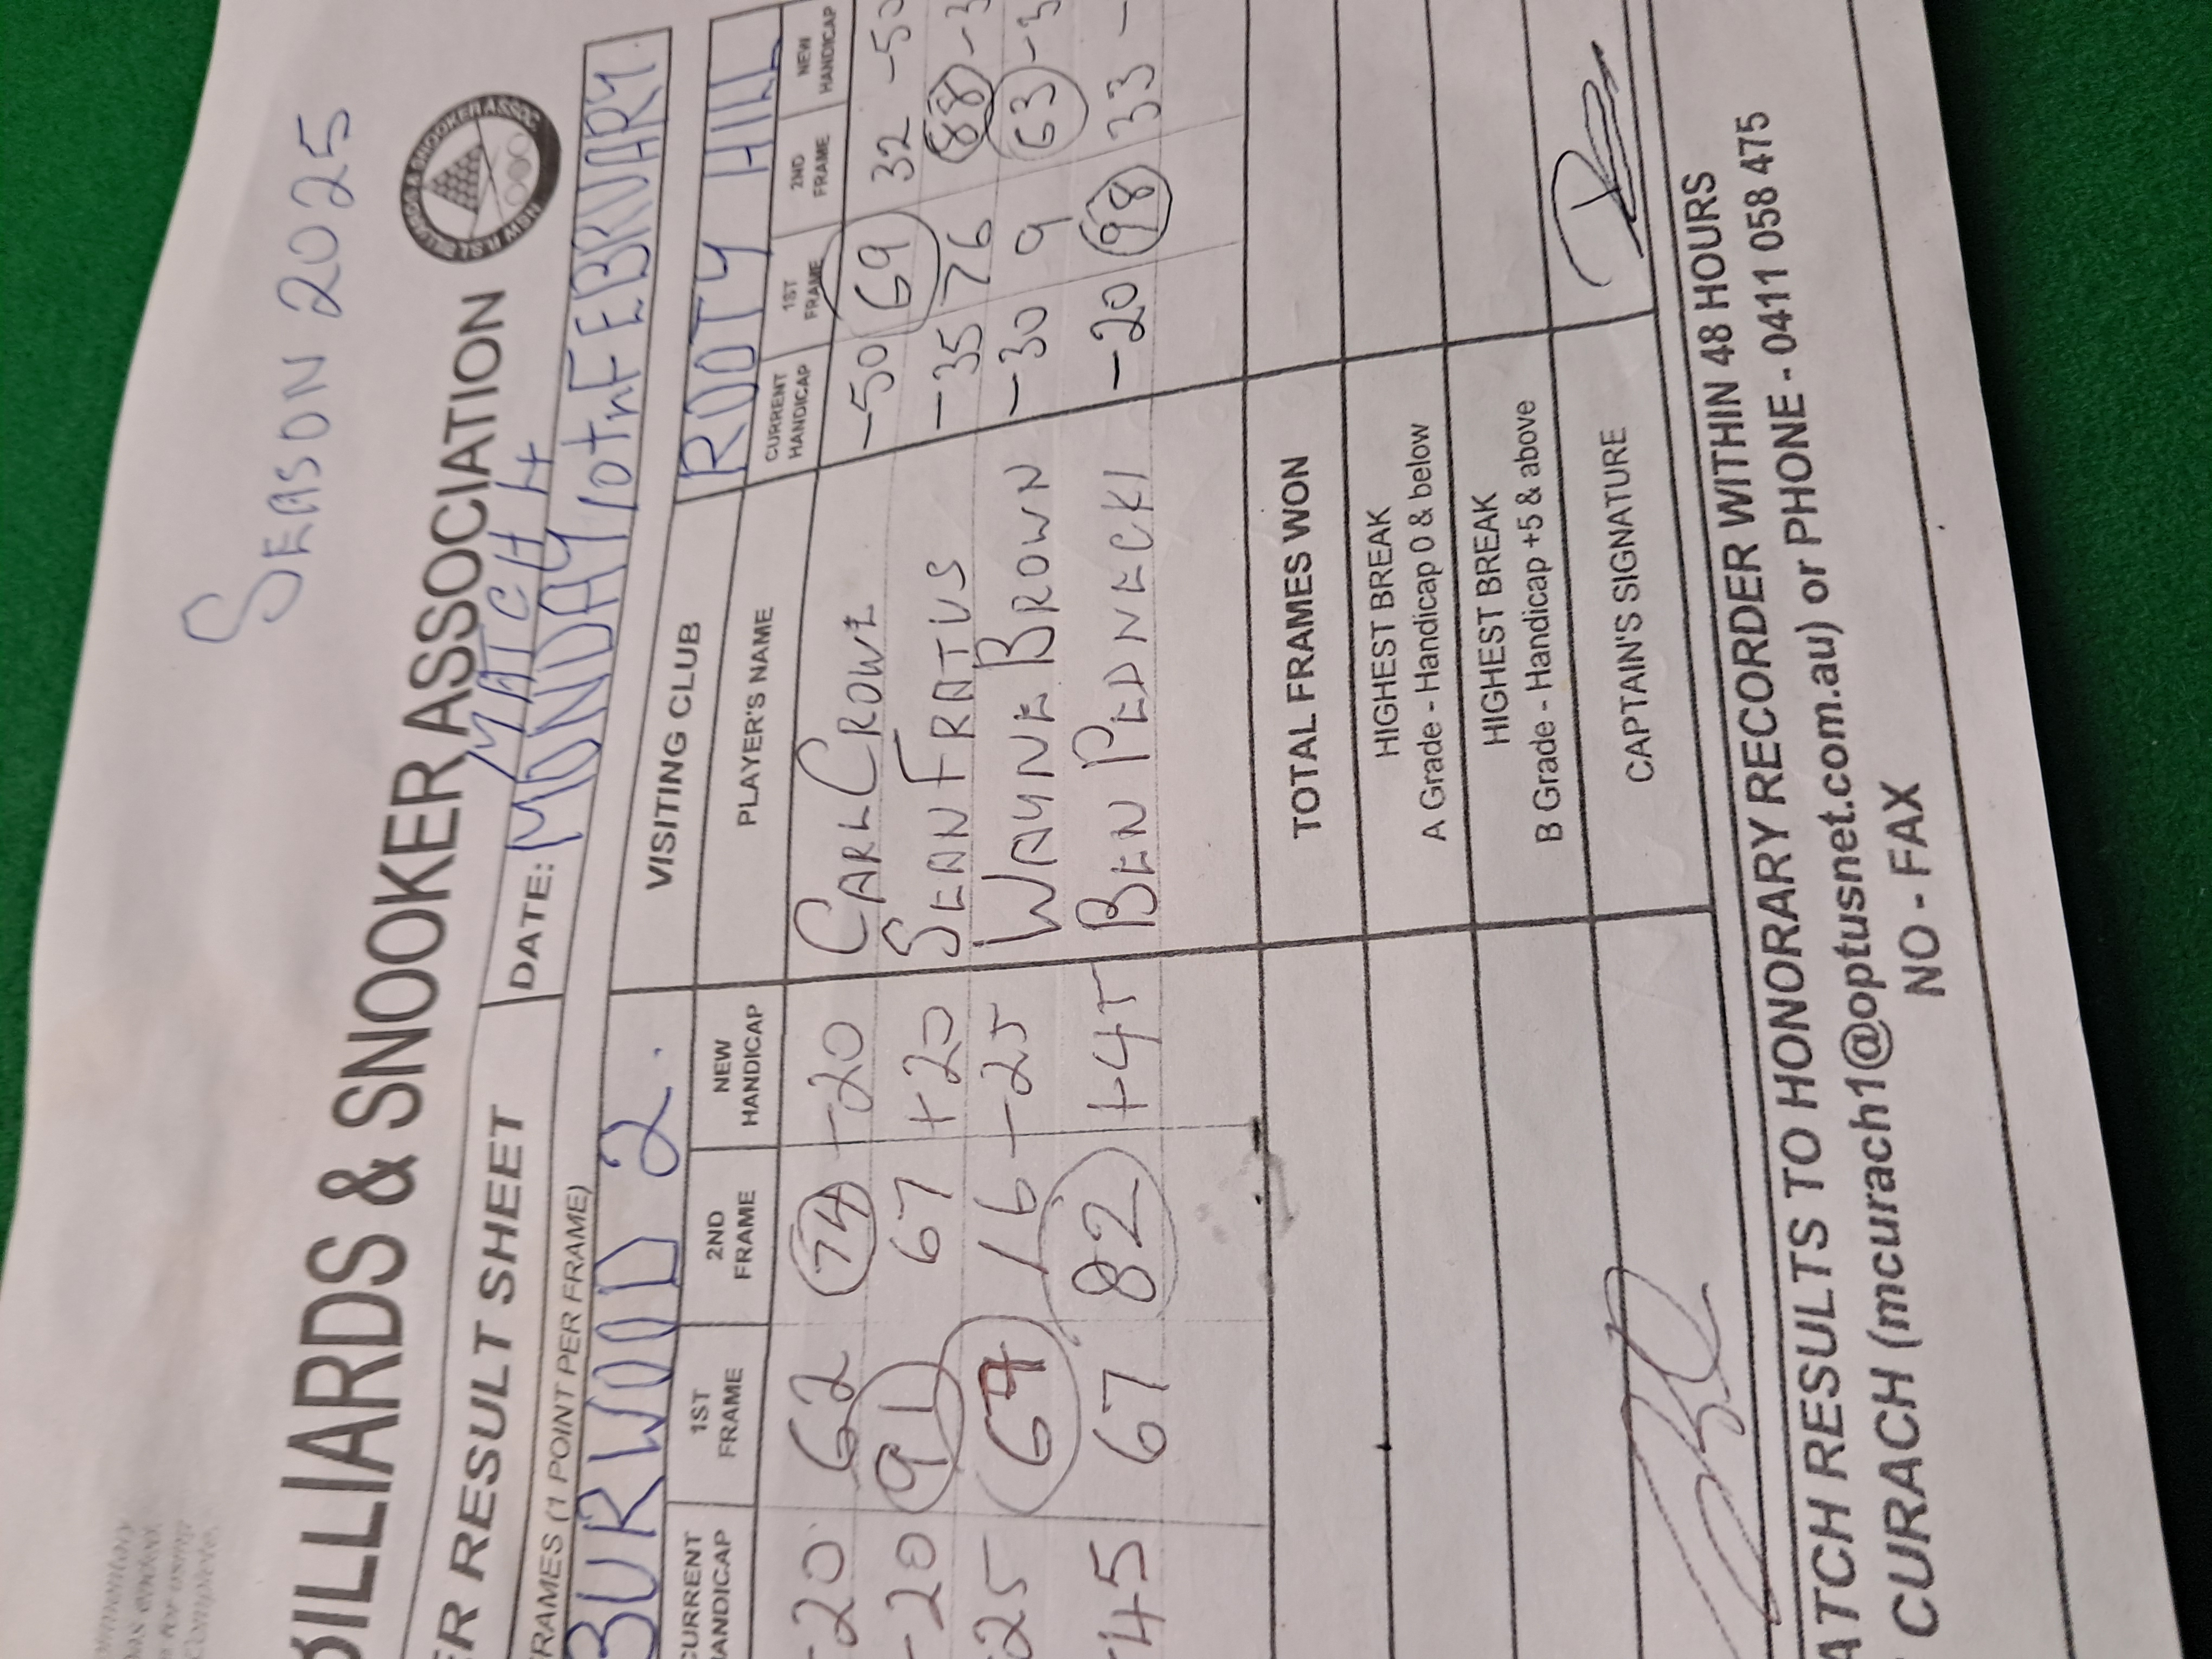 SEASON 2025
BILLIARDS & SNOOKER ASSOCIATION
NSW RSL BILLIARDS & SNOOKER ASSOC
MATCH 4
ER RESULT SHEET
DATE: MONDAY 10th FEBRUARY
FRAMES (1 POINT PER FRAME)
BURWOOD 2.
VISITING CLUB ROOTY HILL
CURRENT HANDICAP 1ST FRAME 2ND FRAME NEW HANDICAP PLAYER'S NAME CURRENT HANDICAP 1ST FRAME 2ND FRAME NEW HANDICAP
-20 62 74 -20 CARL CROWE -50 69 32 -50
-20 91 67 +20 SEAN FRATUS -35 76 88 -3
25 67 16 -25 WAYNE BROWN -30 9 63 -3
45 67 82 +45 BEN PEDNECKI -20 98 33 -
TOTAL FRAMES WON
HIGHEST BREAK
A Grade - Handicap 0 & below
HIGHEST BREAK
B Grade - Handicap +5 & above
CAPTAIN'S SIGNATURE
ATCH RESULTS TO HONORARY RECORDER WITHIN 48 HOURS
CURACH (mcurach1@optusnet.com.au) or PHONE - 0411 058 475
NO - FAX